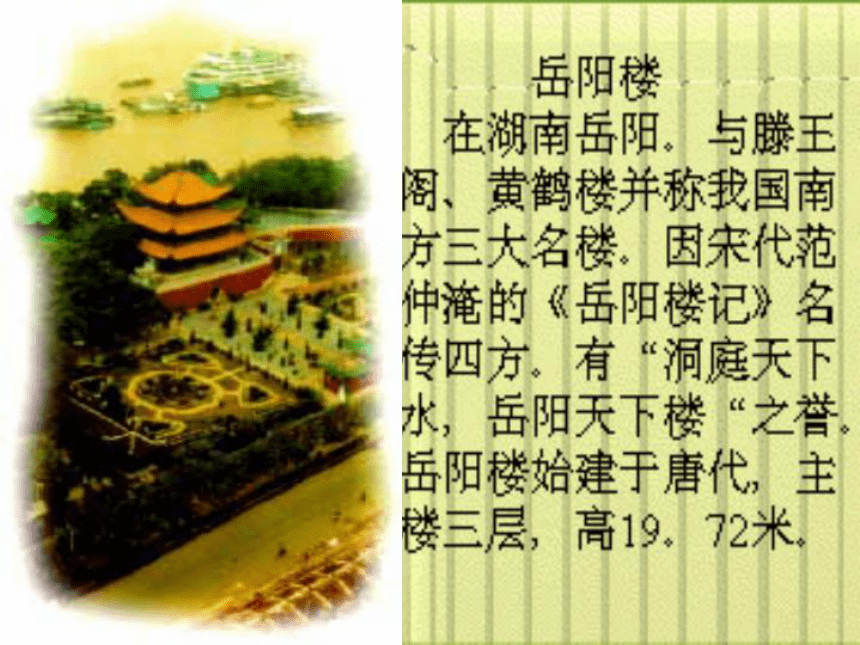 岳阳楼
在湖南岳阳．与滕王
阁、黄鹤楼并称我国南
方三大名楼．因宋代范
仲淹的《岳阳楼记》名
传四方．有“洞庭天下
水，岳阳天下楼“之誉．
岳阳楼始建于唐代，主
楼三层，高19．72米．